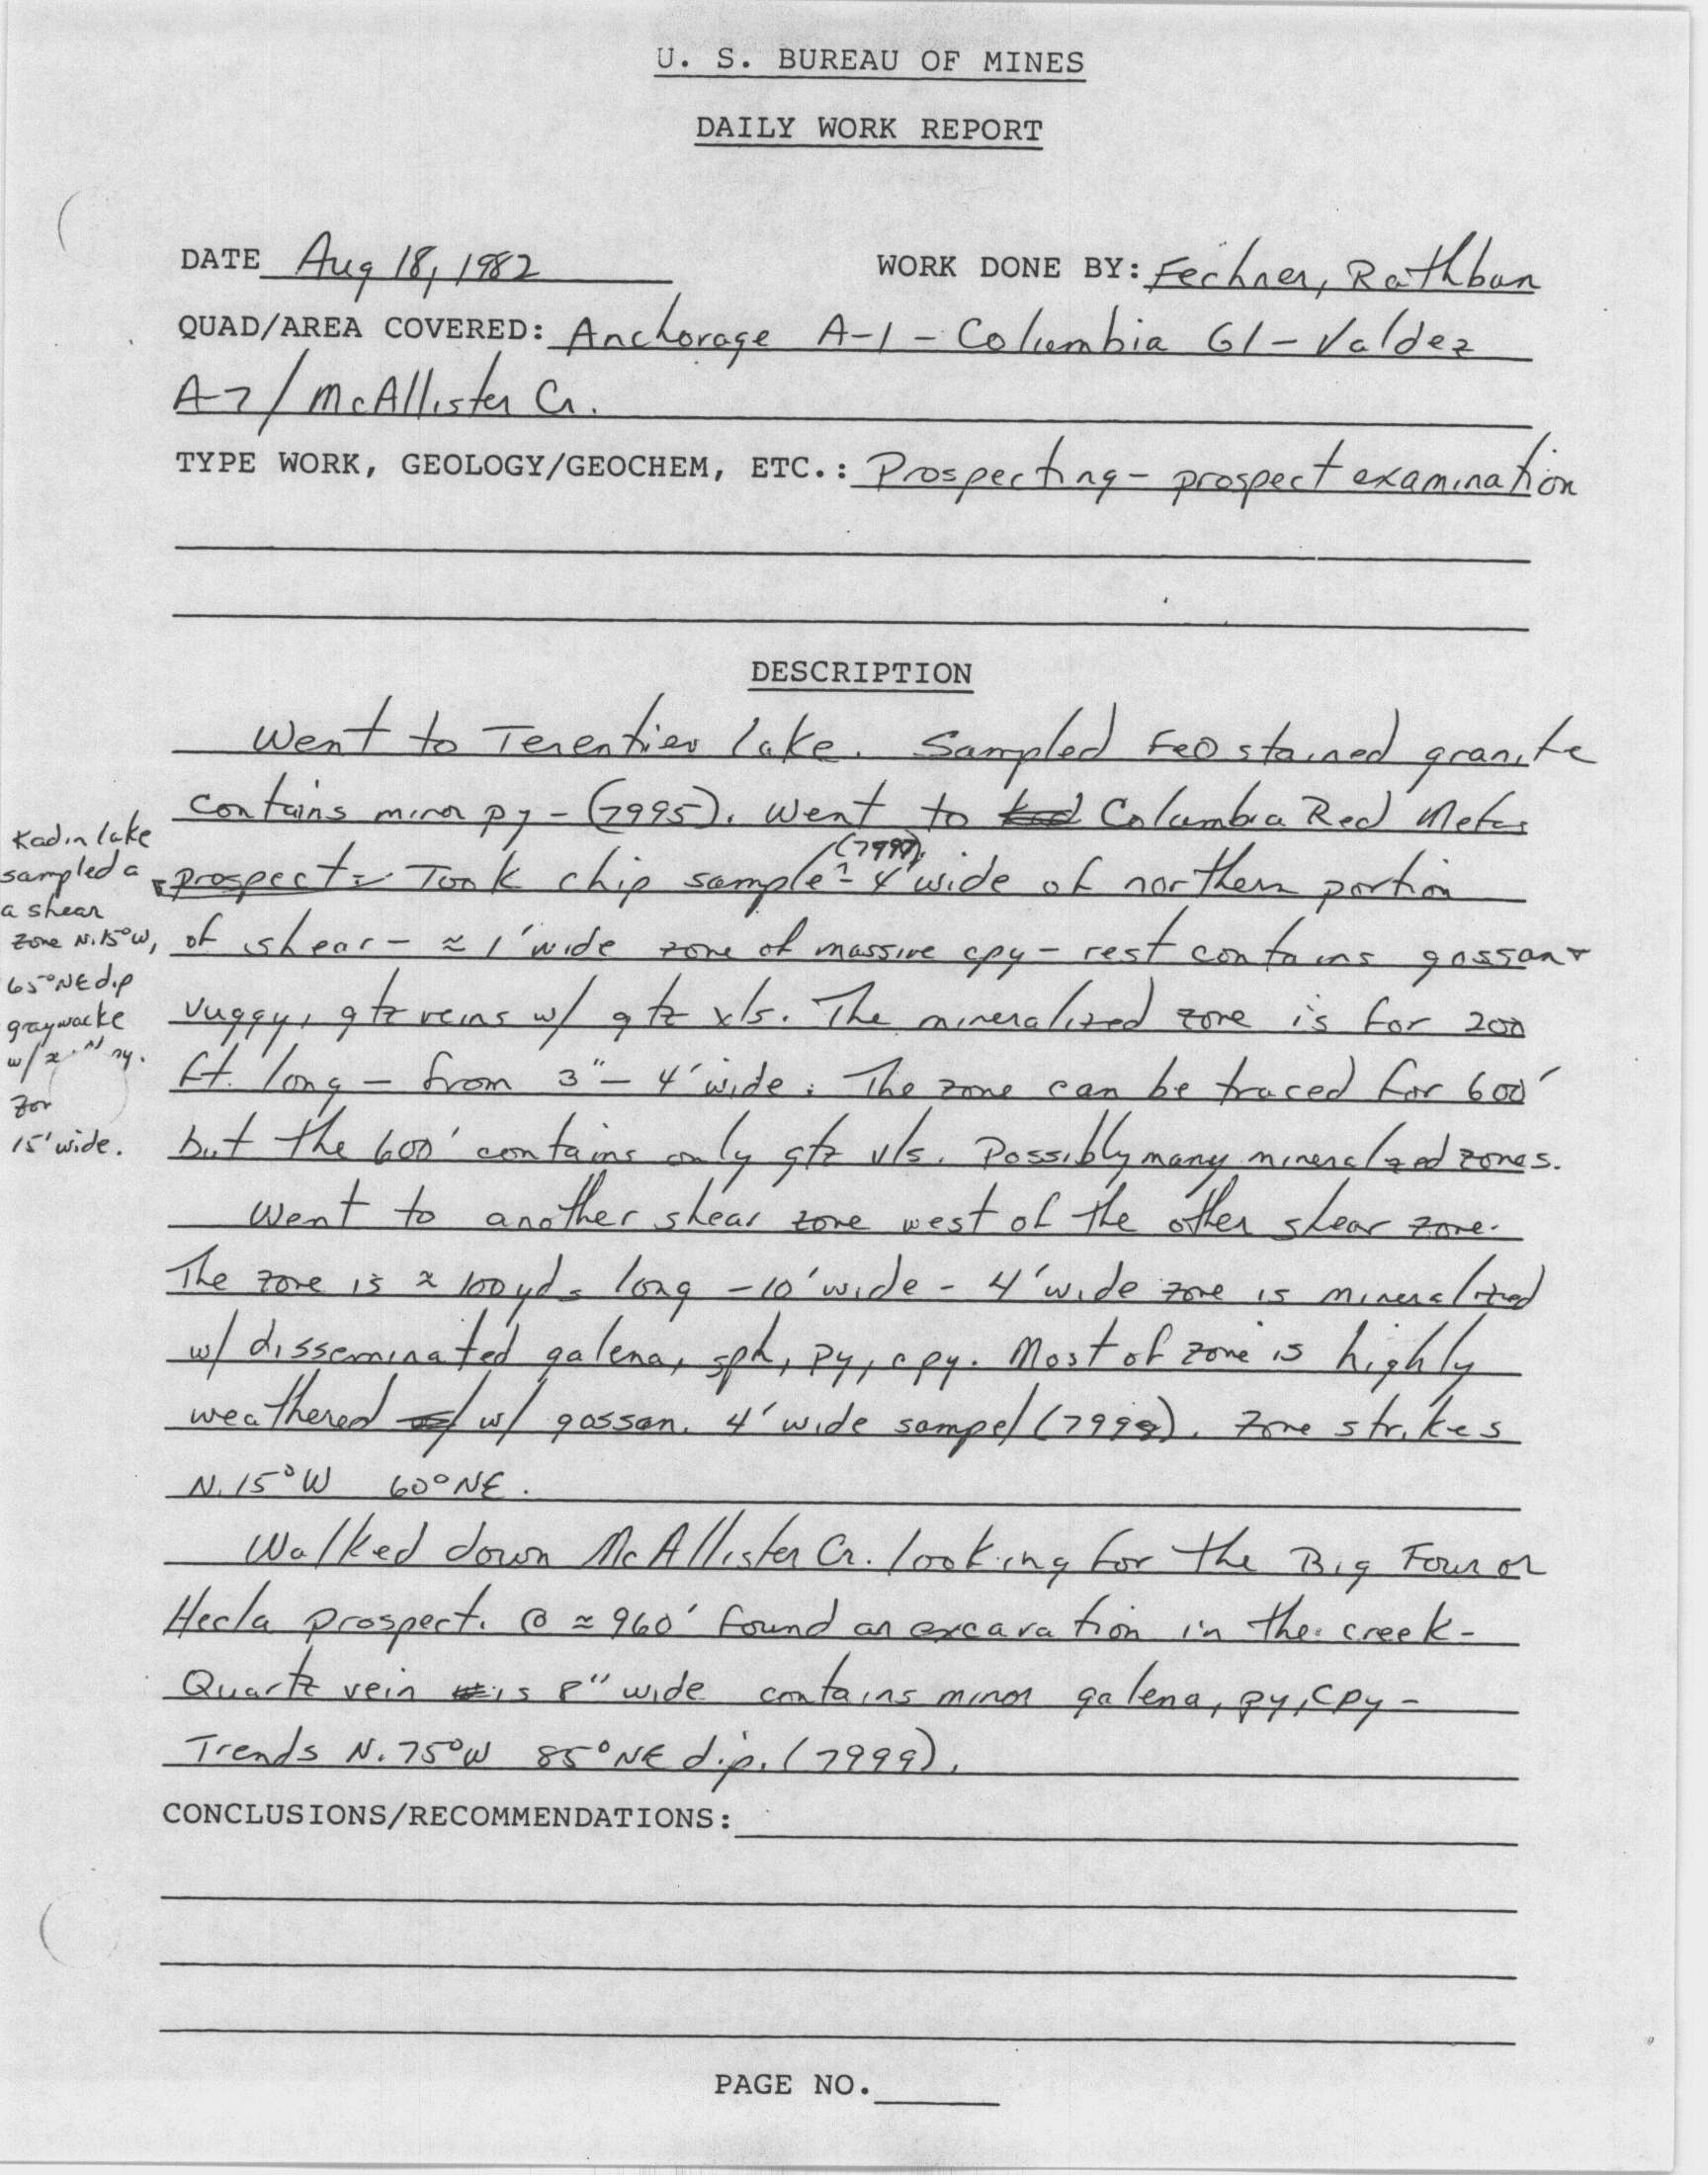 U. S. BUREAU OF MINES
DAILY WORK REPORT
DATE Aug 18, 1982 WORK DONE BY: Fechner, Rathbun
QUAD/AREA COVERED: Anchorage A-1 - Columbia Gl - Valdez
A-7/McAllister Cr.
TYPE WORK, GEOLOGY/GEOCHEM, ETC.: Prospecting - prospect examination
DESCRIPTION
Went to Terentiev lake. Sampled FeO stained granite
contains minor py - (7995). Went to Columbia Red Metas
(7997)
prospect - Took chip sample - 4' wide of northern portion
of shear - ≈ 1' wide zone of massive cpy - rest contains gossan +
vuggy, qtz veins w/ qtz xls. The mineralized zone is for 200
ft. long - from 3" - 4' wide. The zone can be traced for 600'
but the 600' contains only qtz vls. Possibly many mineralized zones.
Went to another shear zone west of the other shear zone.
The zone is ≈ 100 yds long - 10' wide - 4' wide zone is mineralized
w/ disseminated galena, sph, py, cpy. Most of zone is highly
weathered w/ gossan. 4' wide sampel (7998). Zone strikes
N. 15° W 60° NE.
Walked down McAllister Cr. looking for the Big Four or
Hecla prospect. @ ≈ 960' found an excavation in the creek -
Quartz vein is 8" wide contains minor galena, py, cpy -
Trends N. 75° W 85° NE dip. (7999).
Kadin lake
sampled a
a shear
zone N.15°W,
65° NE dip
graywacke
w/ py.
Zon
15' wide.
CONCLUSIONS/RECOMMENDATIONS:
PAGE NO.